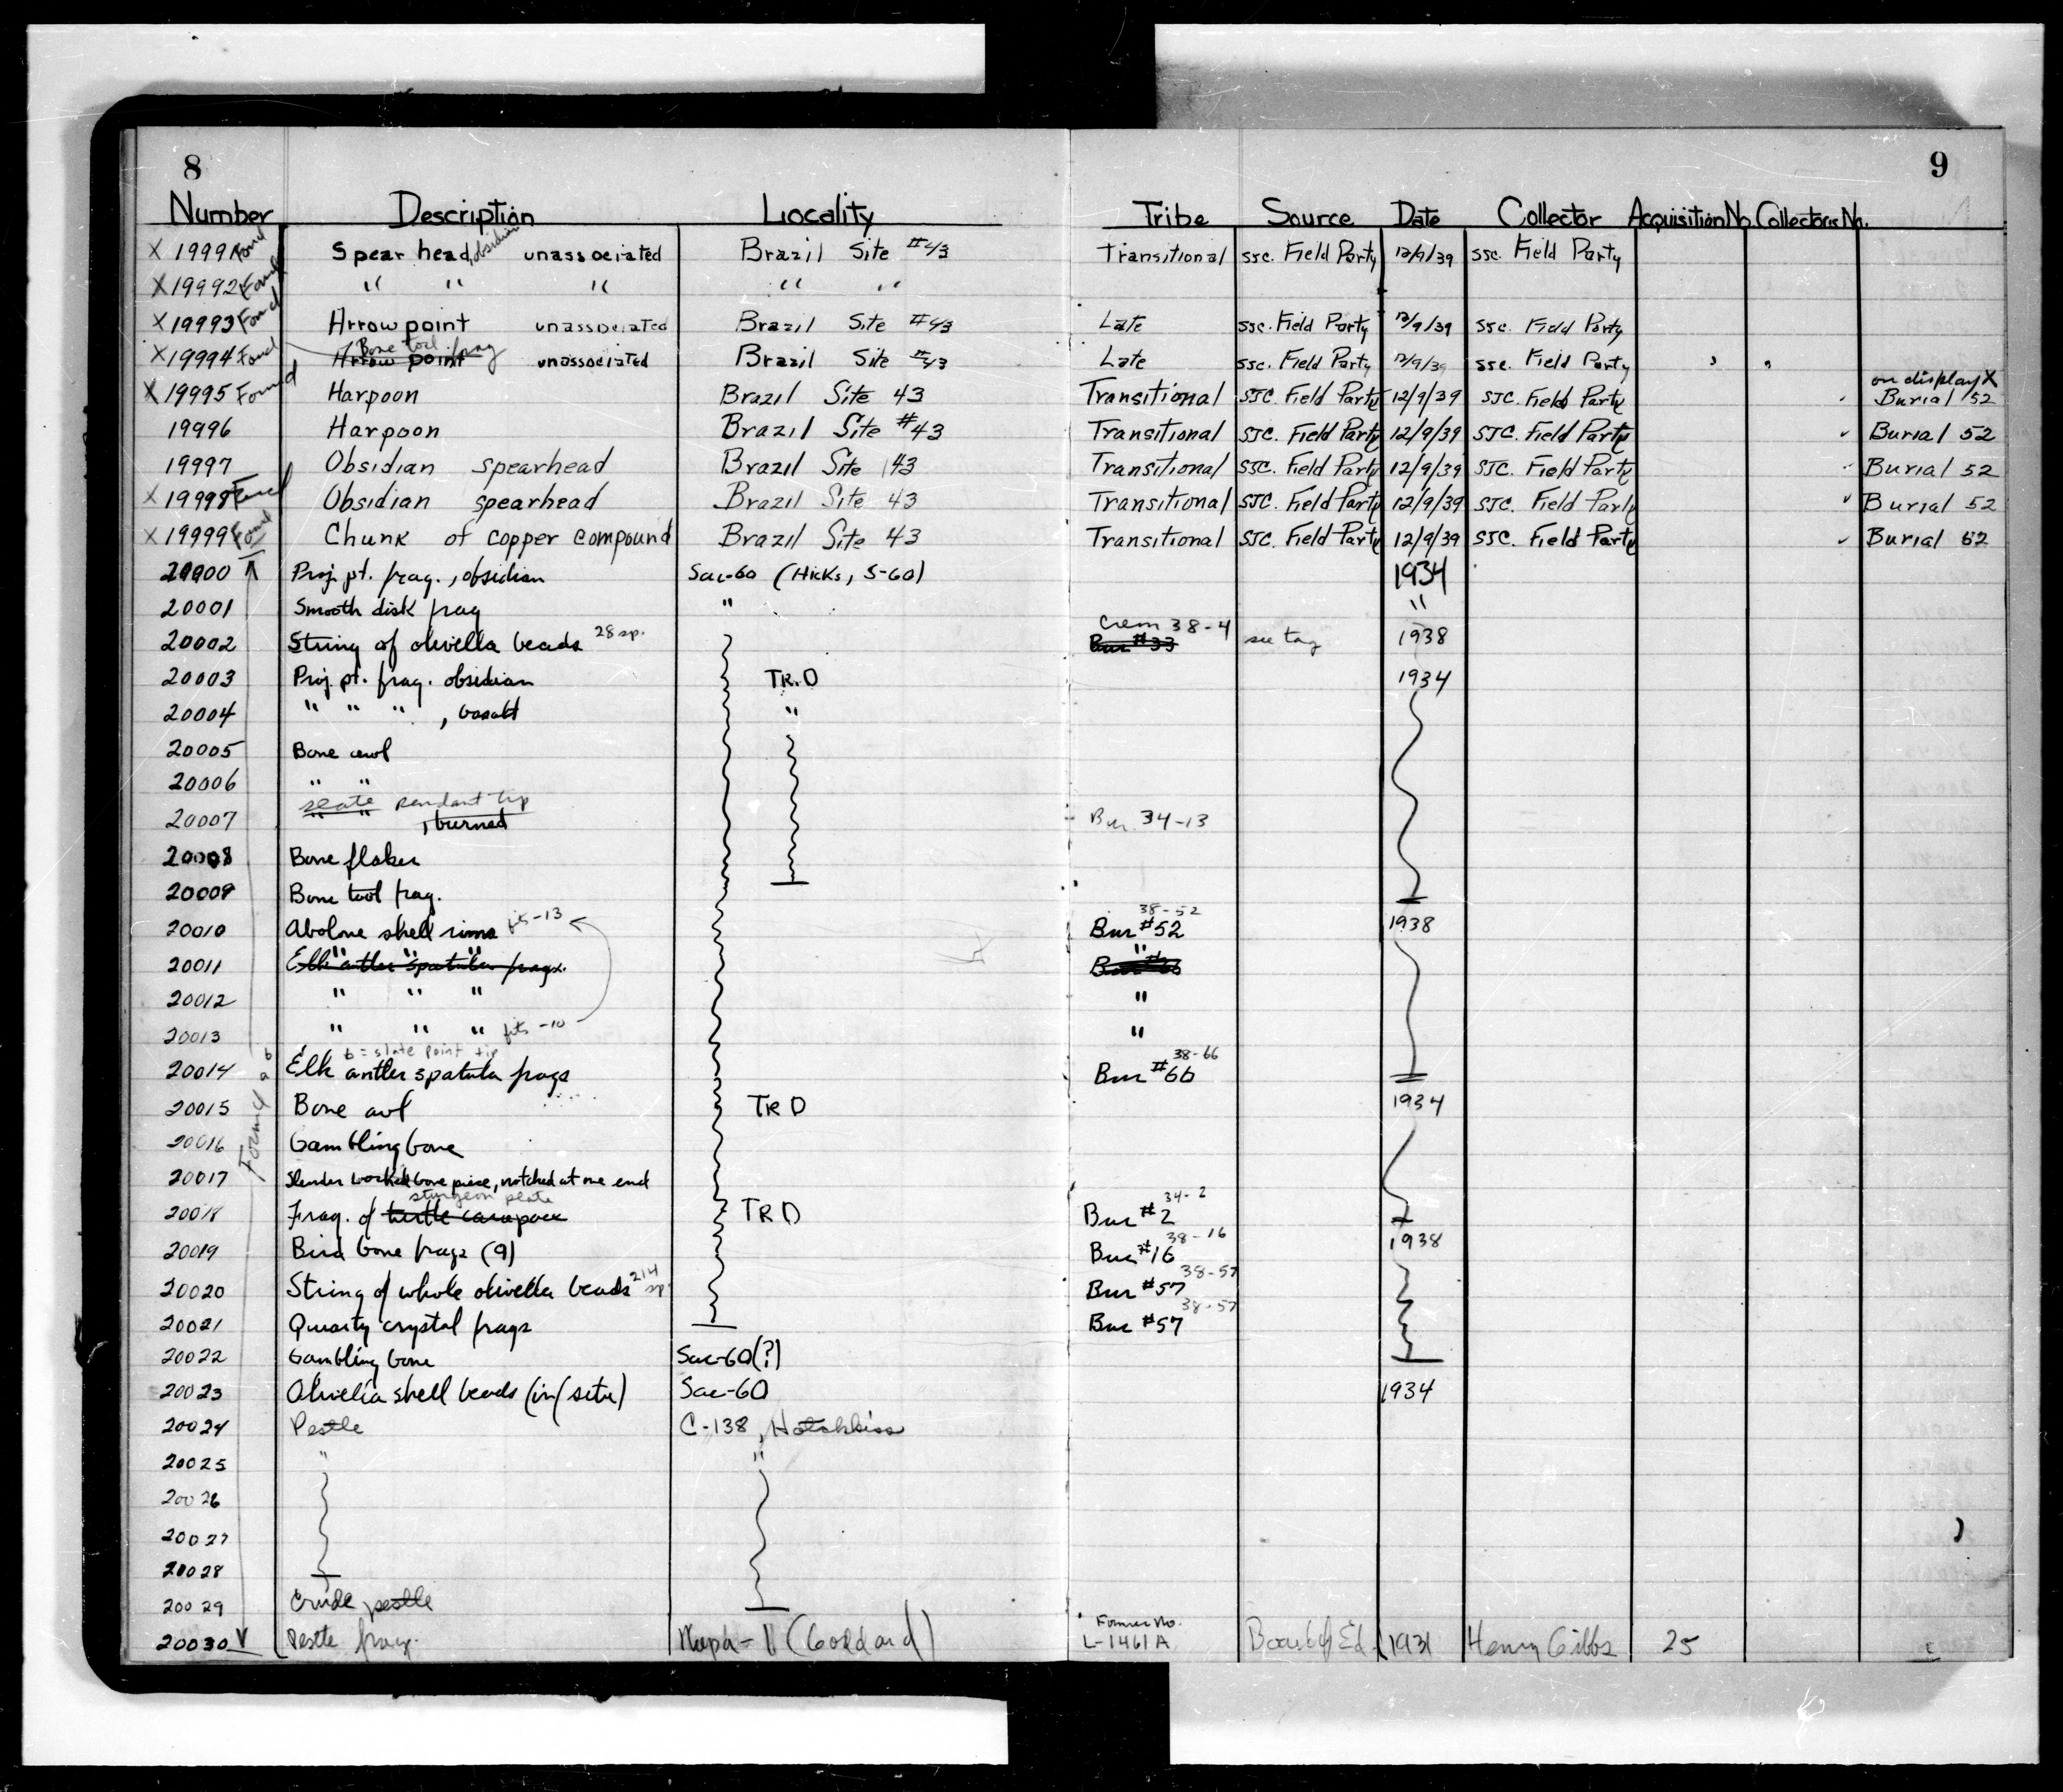 8
9
Number Description Locality Tribe Source Date Collector Acquisition No. Collectors No.
X 1999 Found Spear head, obsidian unassociated Brazil Site #43 Transitional SSC. Field Party 12/9/39 SSC. Field Party
X 19992 Found " " " " "
X 19993 Found Arrow point unassociated Brazil Site #43 Late SSC. Field Party 12/9/39 SSC. Field Party
Bone tool frag
X 19994 Found Arrow point unassociated Brazil Site #43 Late SSC. Field Party 12/9/39 SSC. Field Party
on display X
X 19995 Found Harpoon Brazil Site 43 Transitional SJC. Field Party 12/9/39 SJC. Field Party Burial 52
19996 Harpoon Brazil Site #43 Transitional SJC. Field Party 12/9/39 SJC. Field Party Burial 52
19997 Obsidian spearhead Brazil Site 43 Transitional SJC. Field Party 12/9/39 SJC. Field Party Burial 52
X 19998 Found Obsidian spearhead Brazil Site 43 Transitional SJC. Field Party 12/9/39 SJC. Field Party Burial 52
X 19999 Found Chunk of copper compound Brazil Site 43 Transitional SJC. Field Party 12/9/39 SJC. Field Party Burial 52
20000 Proj. pt. frag., obsidian Sac-60 (Hicks, S-60) 1934
20001 Smooth disk frag " "
Crem 38-4
20002 String of olivella beads 28 sp. Bur #33 see tag 1938
20003 Proj. pt. frag. obsidian TR. D 1934
20004 " " " , basalt "
20005 Bone awl
20006 " "
slate pendant tip
20007 " " , burned Bur. 34-13
20008 Bone flaker
20009 Bone tool frag.
38-52
20010 Abalone shell rims fits -13 Bur #52 1938
" " " "
20011 Elk antler spatula frags. Bur #66
20012 " " " "
20013 " " " fits -10 "
b = slate point tip 38-66
20014 a b Elk antler spatula frags Bur #66
20015 Bone awl TR D 1934
Found
20016 Gambling bone
20017 Slender worked bone piece, notched at one end
sturgeon plate 34-2
20018 Frag. of turtle carapace TR D Bur #2
38-16
20019 Bird bone frags (9) Bur #16 1938
38-57
20020 String of whole olivella beads 214 sp. Bur #57
38-57
20021 Quartz crystal frags Bur #57
20022 Gambling bone Sac-60(?)
20023 Olivella shell beads (in situ) Sac-60 1934
20024 Pestle C-138, Hotchkiss
20025 " "
20026
20027
20028
20029 Crude pestle
Former No.
20030 Pestle frag. (Goddard) L-1461A Board of Ed. 1931 Henry Gibbs 25